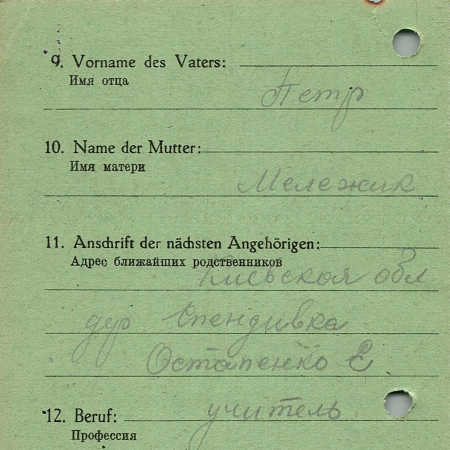 9. Vorname des Vaters:
Имя отца
Петр
10. Name der Mutter:
Имя матери
Мележик
11. Anschrift der nächsten Angehörigen:
Адрес ближайших родственников
Киевская обл
Остапенко Е
12. Beruf:
учитель
Профессия